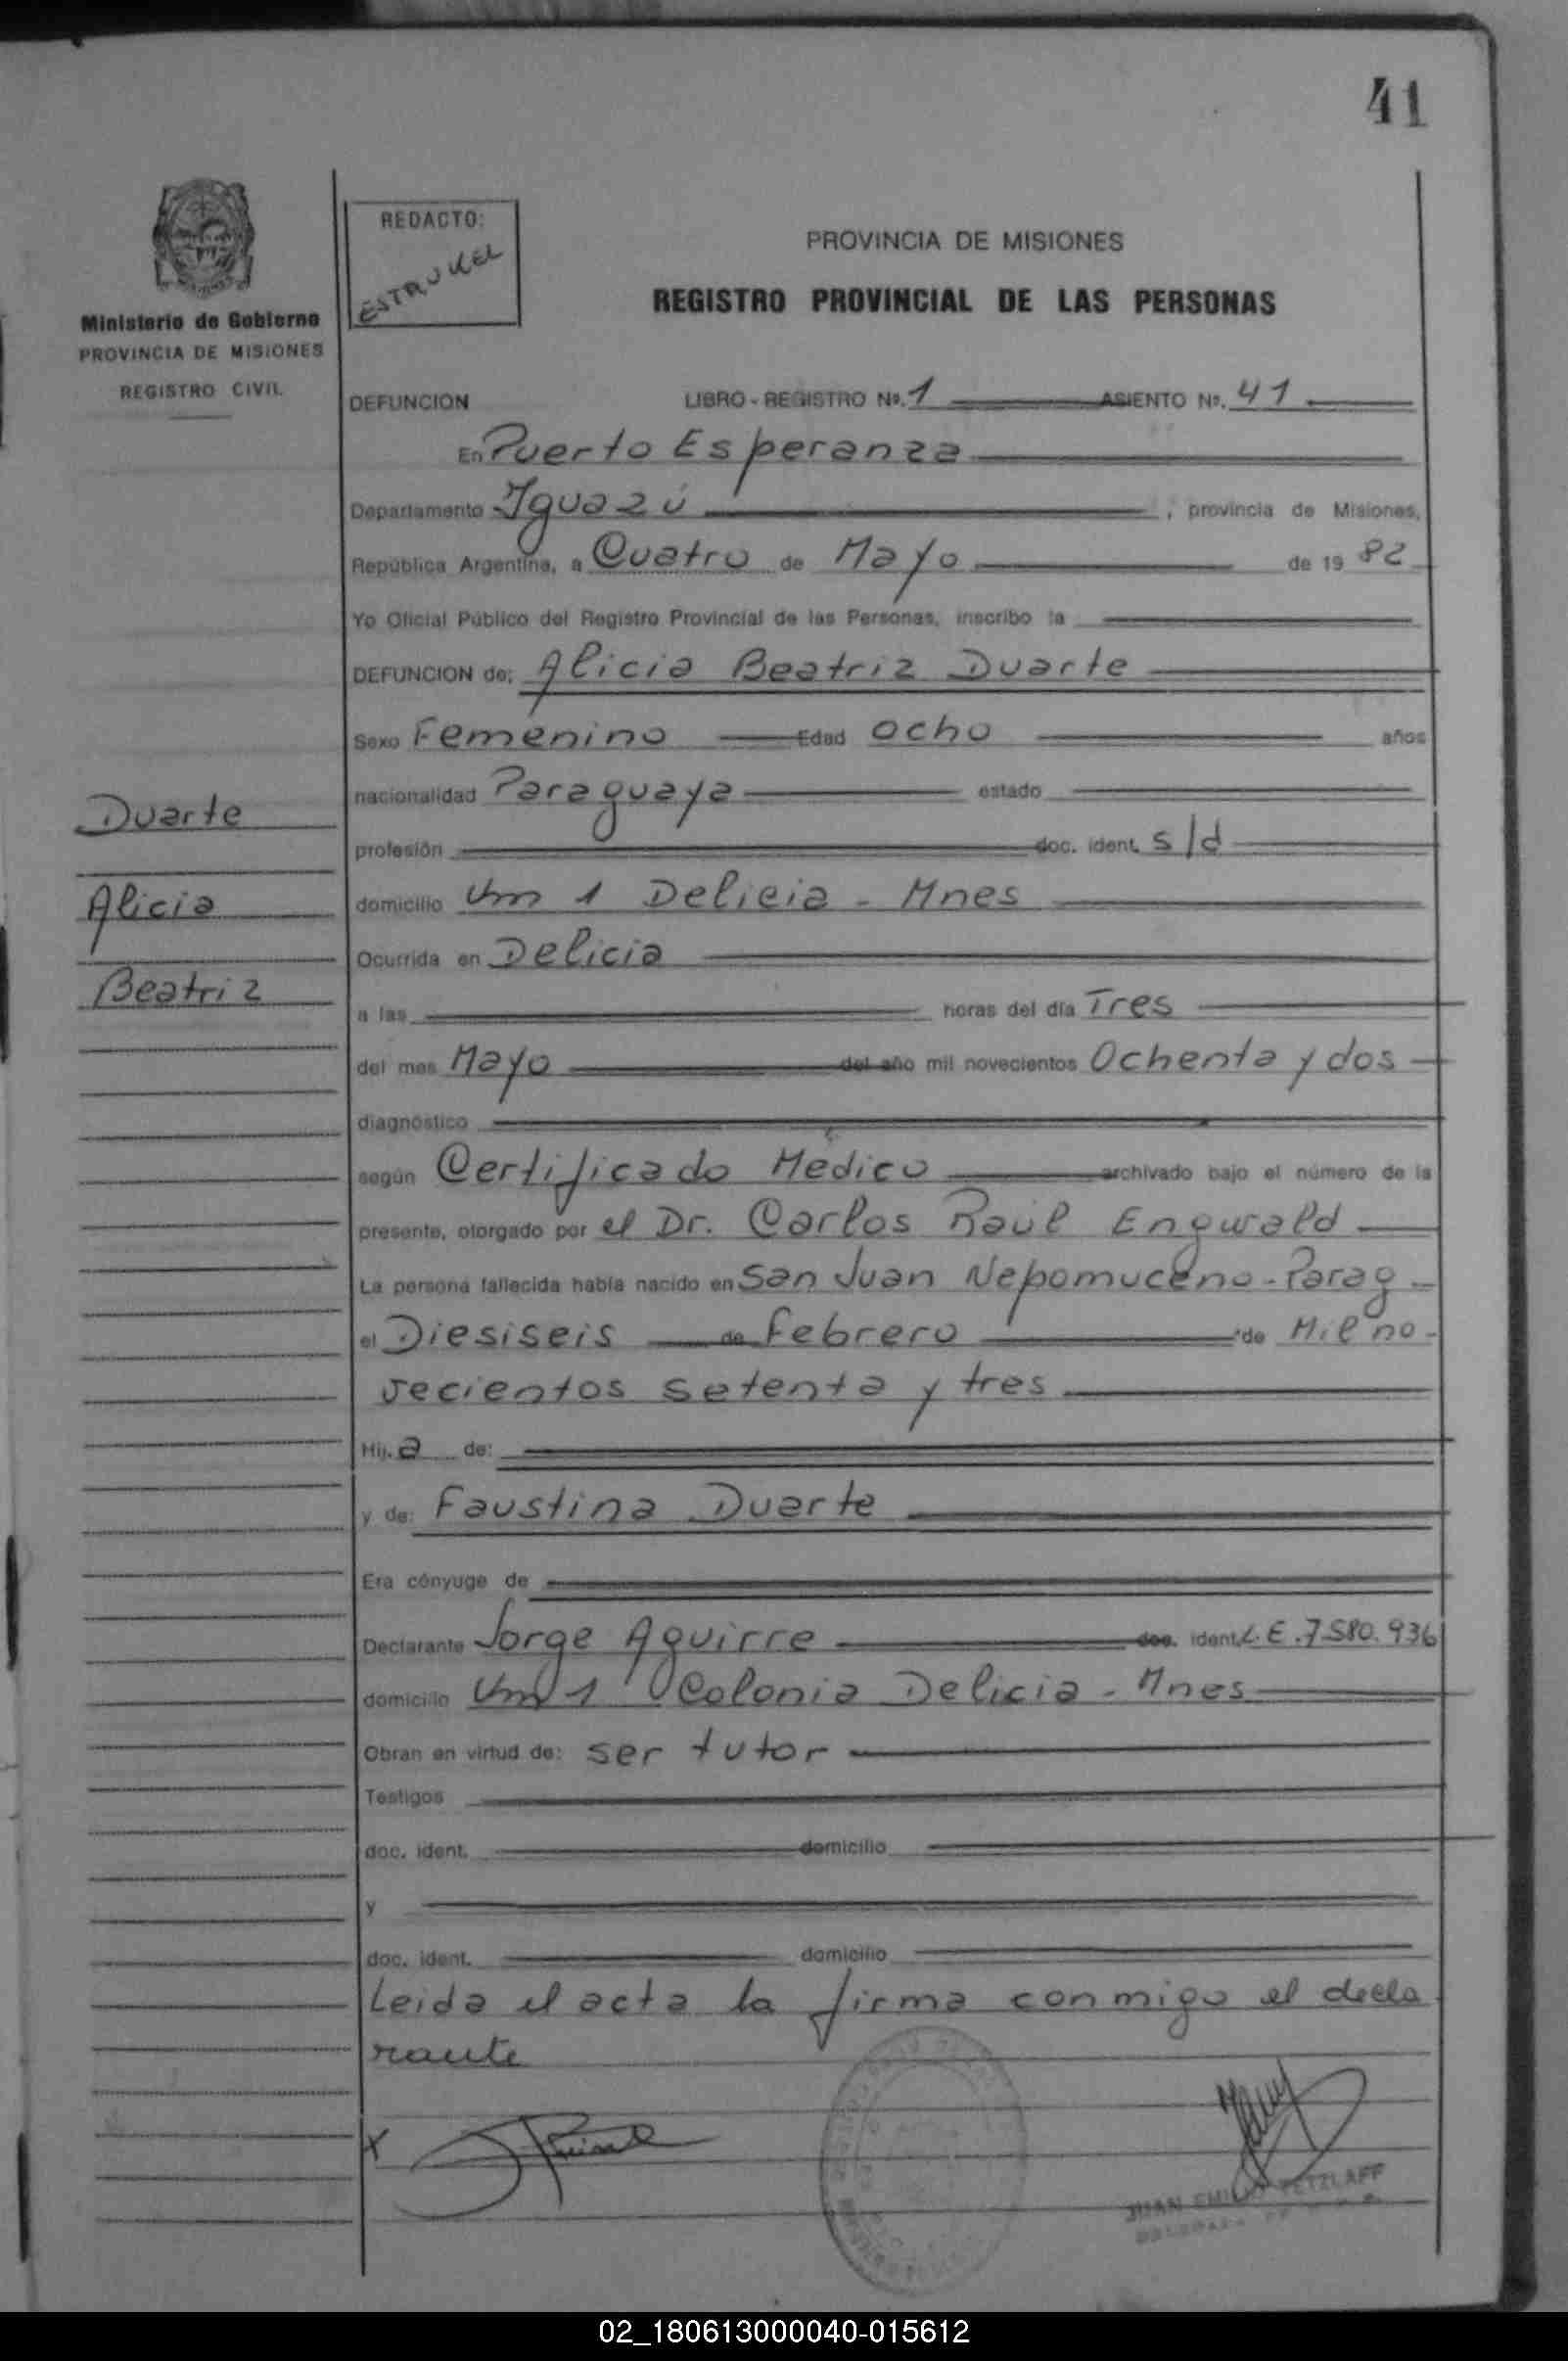 41
Ministerio de Gobierno
PROVINCIA DE MISIONES
REGISTRO CIVIL
REDACTO:
ESTRUKEL
PROVINCIA DE MISIONES
REGISTRO PROVINCIAL DE LAS PERSONAS
DEFUNCION LIBRO - REGISTRO Nº. 1 ASIENTO Nº. 41
En Puerto Esperanza
Departamento Iguazú , provincia de Misiones,
República Argentina, a Cuatro de Mayo de 19 82
Yo Oficial Público del Registro Provincial de las Personas, inscribo la
DEFUNCION de: Alicia Beatriz Duarte
Sexo Femenino Edad Ocho años
nacionalidad Paraguaya estado
profesión doc. ident. s/d
domicilio Km 1 Delicia - Mnes
Ocurrida en Delicia
a las horas del día Tres
del mes Mayo del año mil novecientos Ochenta y dos
diagnóstico
según Certificado Médico archivado bajo el número de la
presente, otorgado por el Dr. Carlos Raúl Engwald
La persona fallecida había nacido en San Juan Nepomuceno - Parag
el Diesiseis de Febrero de Mil no-
vecientos setenta y tres
Hij. a de:
y de: Faustina Duarte
Era cónyuge de
Declarante Jorge Aguirre doc. ident. L.E. 7.580.936
domicilio Km 1 Colonia Delicia - Mnes
Obran en virtud de: ser tutor
Testigos
doc. ident. domicilio
y
doc. ident. domicilio
Leida el acta la firma conmigo el decla
rante
Duarte
Alicia
Beatriz
X
JUAN EMILIO PETZLAFF
02_180613000040-015612